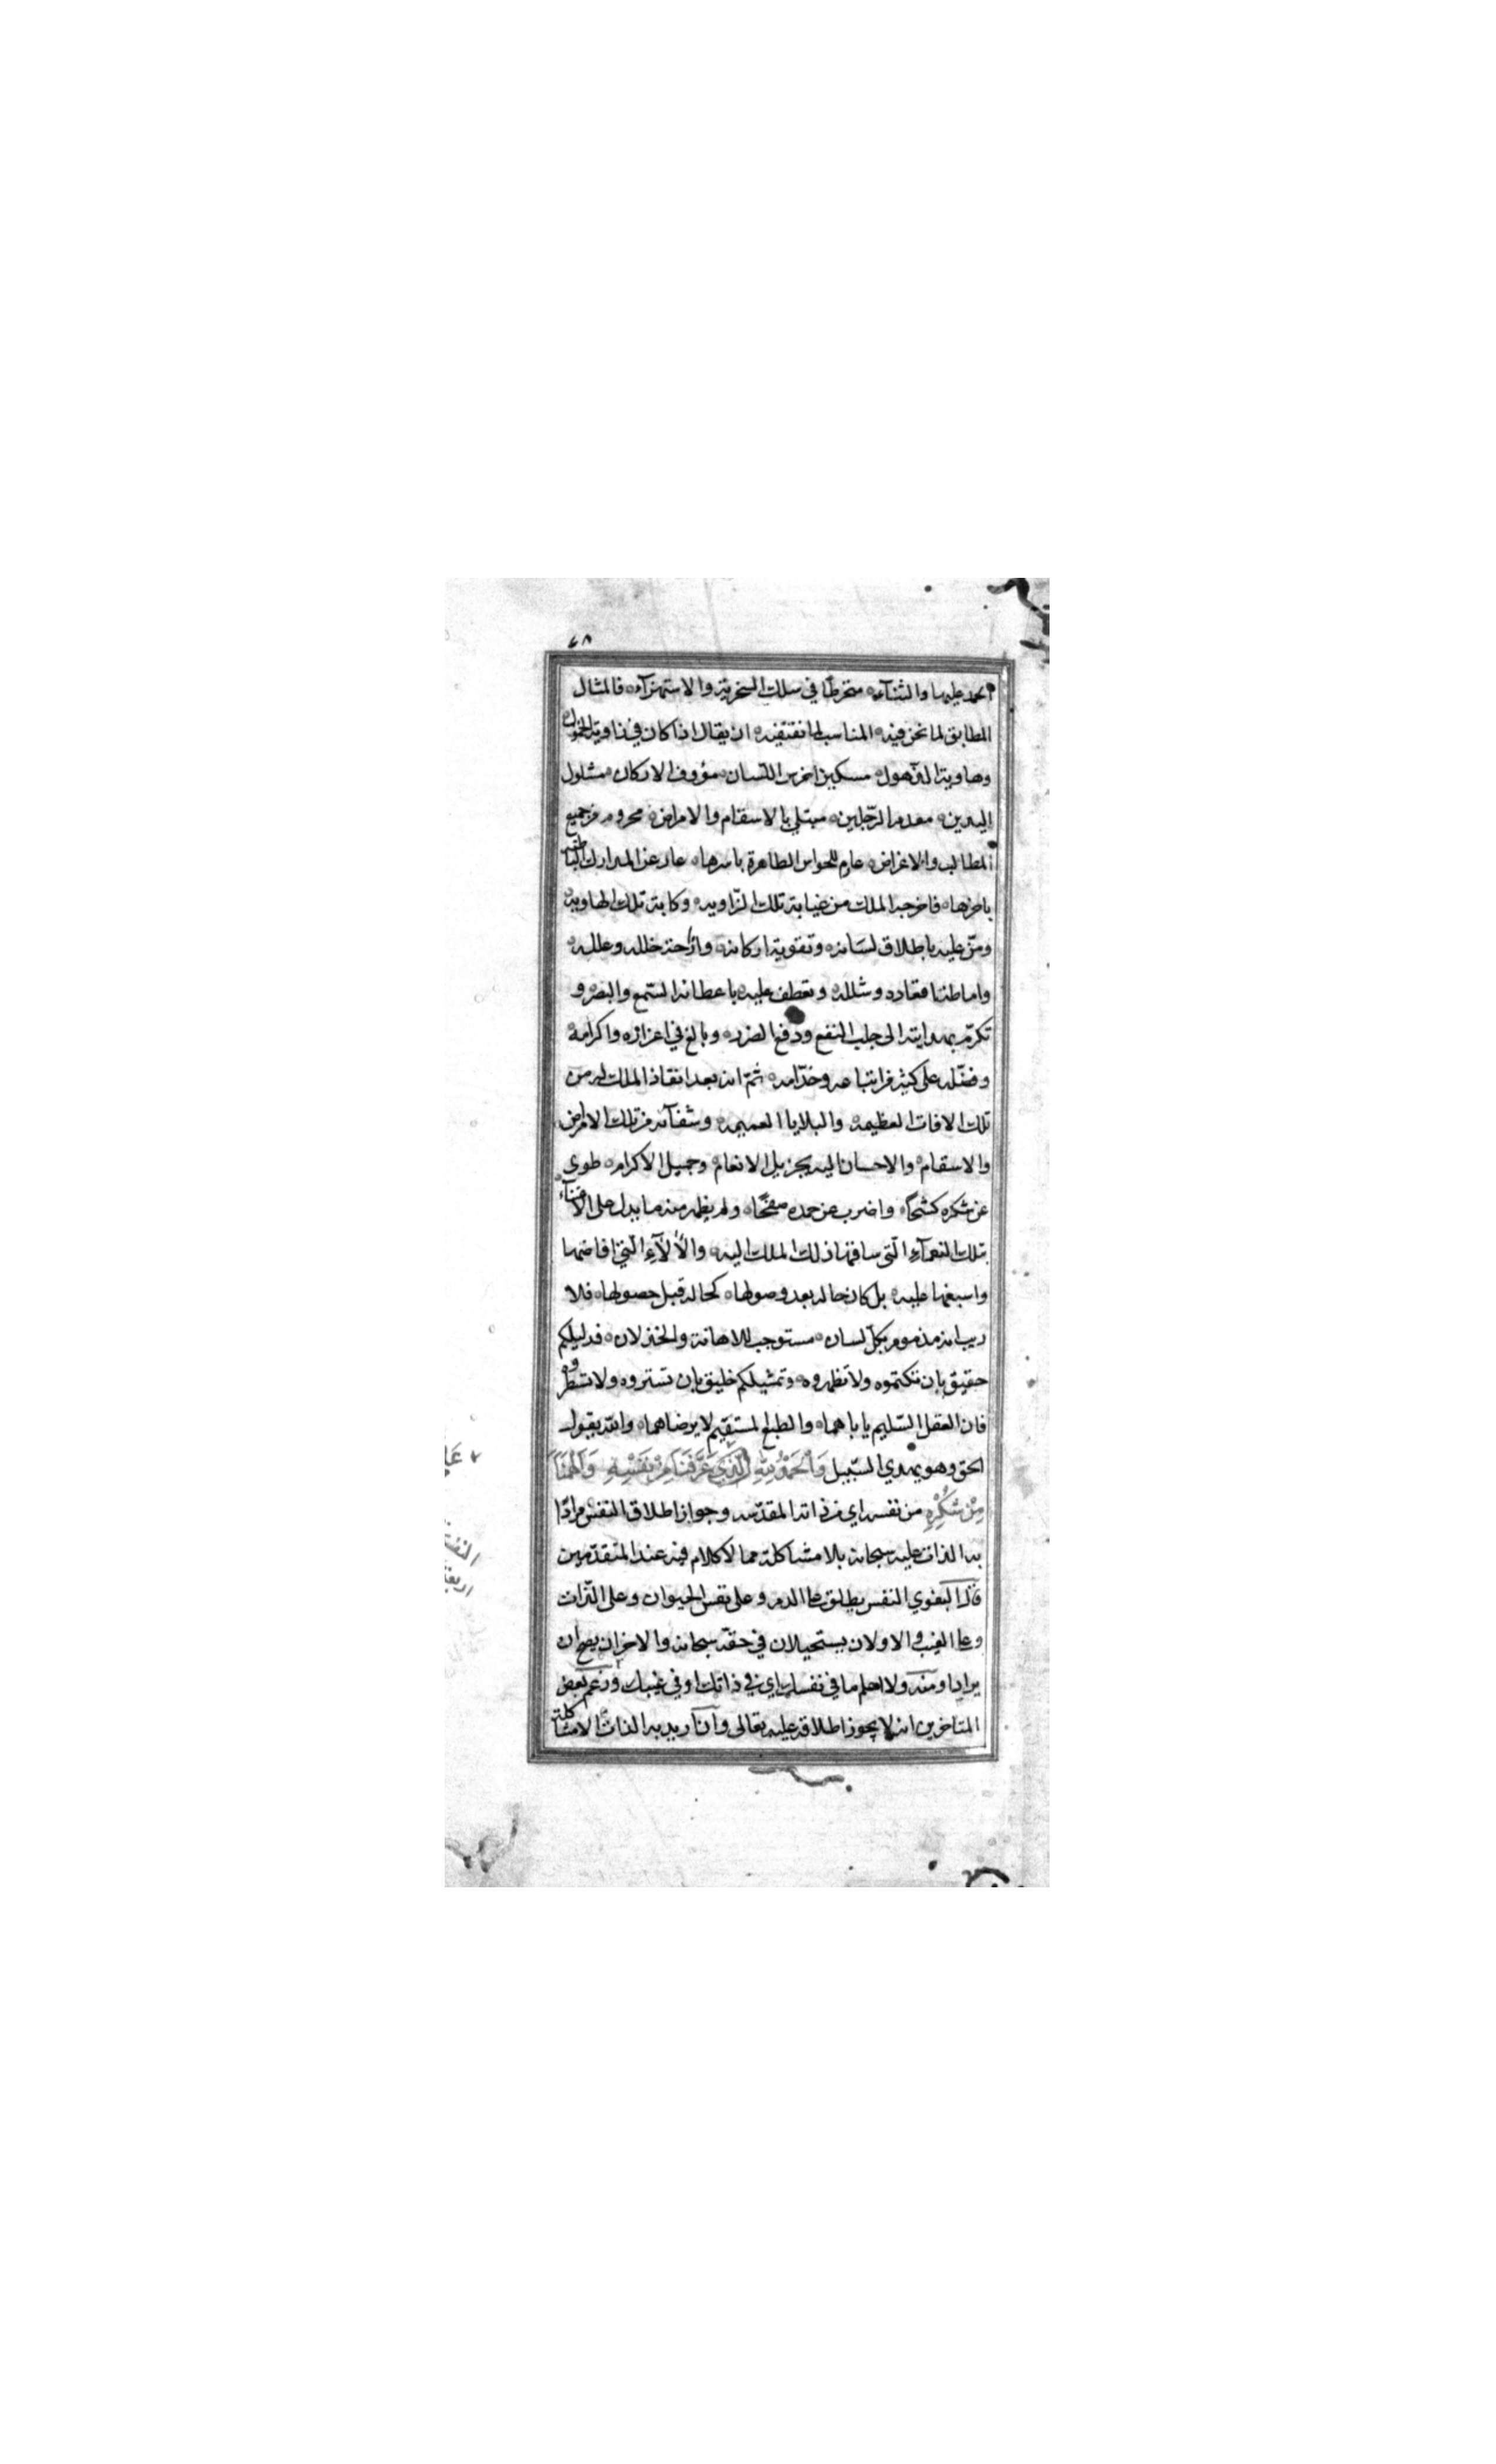 ٤٨
الحمد عليها والثنآء منخرطا في سلك السخرية والاستهزآء فالمثال
المطابق لما نحن فيه المناسب لما نقتفيه ان يقال اذا كان في زاوية الخمول
وهاوية الذهول مسكين اخرس اللسان مؤوف الاركان مشلول
اليدين معدم الرّجلين مبتلي بالاسقام والامراض محروم من جميع
المطالب والاغراض عادم للحواس الظاهرة باسرها عار عن المدارك الباطنة
باجزها فاخرجه الملك من غيابة تلك الزّاويه وكابة تلك الهاويه
ومنّ عليه باطلاق لسانه وتقوية اركانه وازاحة خلله وعلله
واماطة اقعاده وشلله وتعطف عليه باعطائه السّمع والبصر و
تكرّم بهدايته الى جلب النفع ودفع الضرر وبالغ في اعزازه واكرامه
وفضّله على كثير من اتباعه وخدّامه ثمّ انه بعد انقاذ الملك له من
تلك الافات العظيمه والبلايا العميمه وشفآئه من تلك الامراض
والاسقام والاحسان اليه بجزيل الانعام وجميل الاكرام طوى
عن شكره كشحًا واضرب عن حمده صفحًا ولم يظهر منه ما يدل على الاعتناء
بتلك النعمآء الّتي ساقها ذلك الملك اليه والألآء الّتي افاضها
واسبغها عليه بل كان حاله بعد وصولها كحاله قبل حصولها فلا
ريب انه مذموم بكلّ لسان مستوجب للاهانة والخذلان فدليلكم
حقيق بان تكتموه ولا تظهروه وتمثيلكم خليق بان تستروه ولا تسطروه
فان العقل السّليم ياباهما والطبع المستقيم لا يرضاهما والله يقول
الحق وهو يهدي السّبيل وَالْحَمْدُ لِلّهِ الَّذِي عَرَّفَنَا مِنْ نَفْسِهِ وَأَلْهَمَنَا
مِنْ شُكْرِهِ من نفسه اي من ذاته المقدّسه وجواز اطلاق النفس مرادًا
به الذات عليه سبحانه بلا مشاكلة مما لا كلام فيه عند المتقدّمين
قال البغوي النفس يطلق على الدم وعلى نفس الحيوان وعلى الذّات
وعلى الغيب والاولان يستحيلان في حقه سبحانه والاخران يصح ان
يرادا ومنه ولا اعلم ما في نفسك اي في ذاتك او في غيبك وزعم بعض
المتاخرين انه لا يجوز اطلاقه عليه تعالى وان اريد به الذات الا مشاكلة